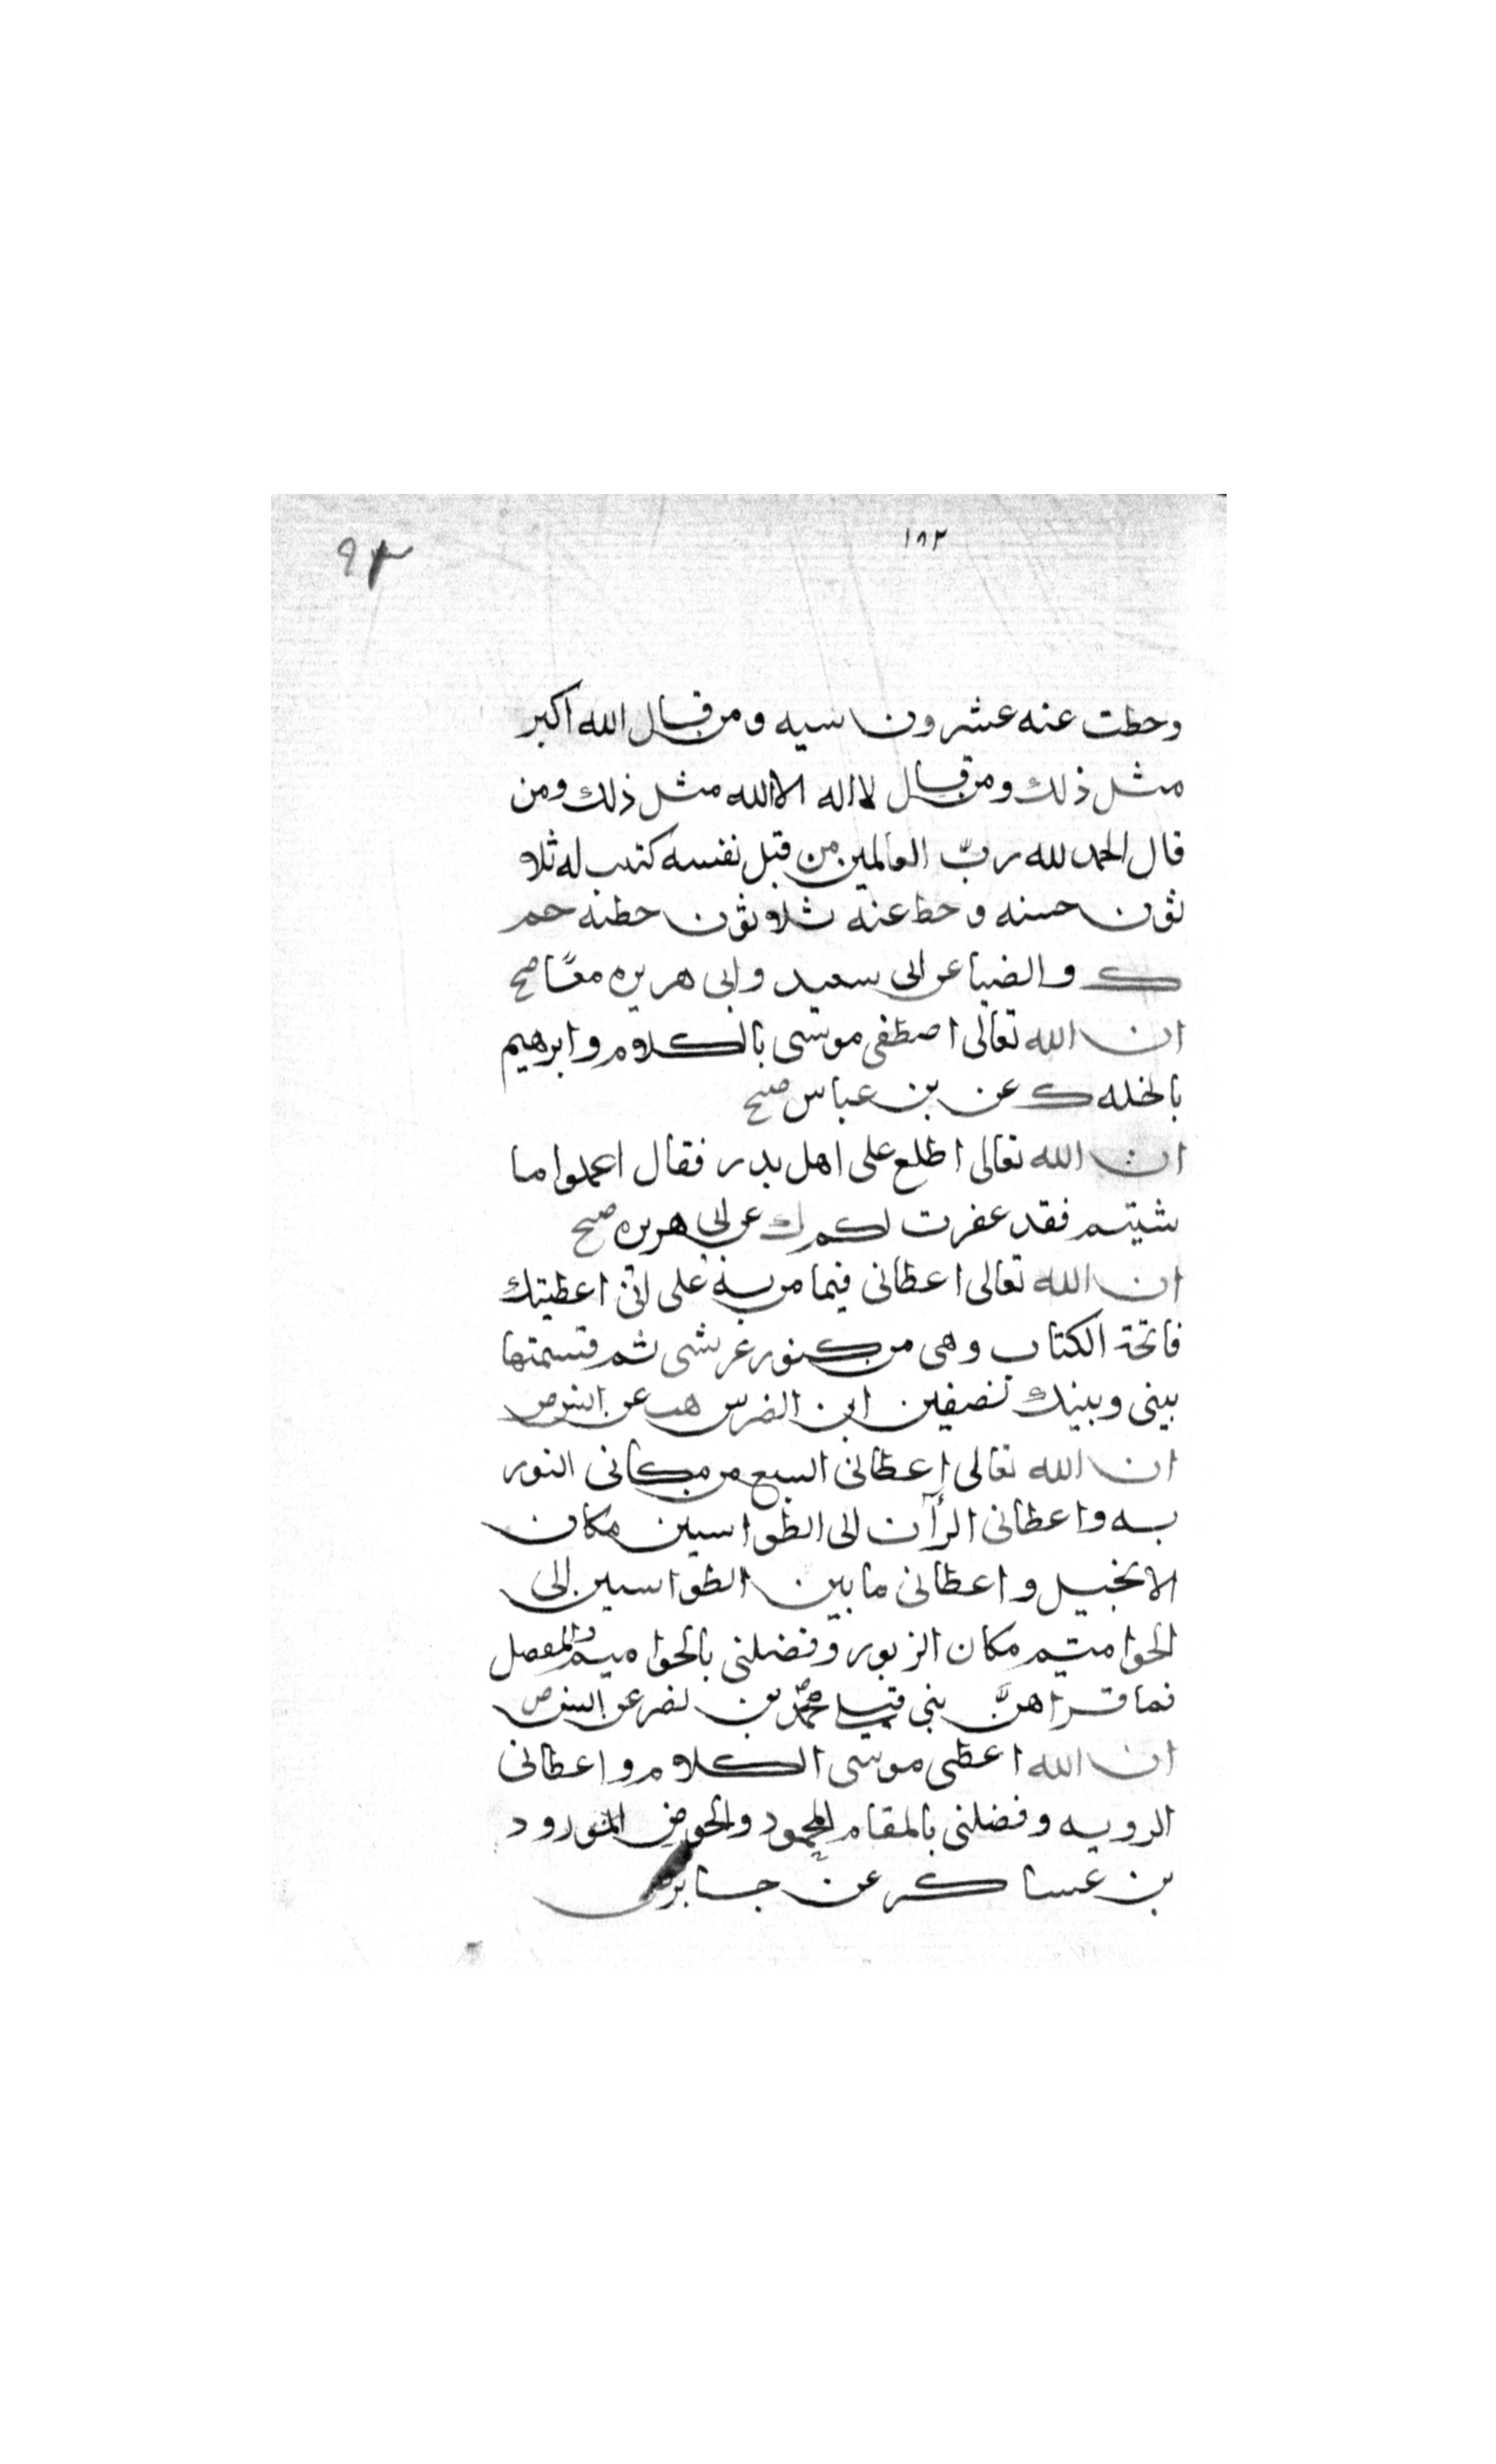 ١٨٢
٩٣
وحطت عنه عشرون سيه ومن قال الله اكبر
مثل ذلك ومن قال لا اله الا الله مثل ذلك ومن
قال الحمد لله رب العالمين من قبل نفسه كتب له ثلا
ثون حسنه وحط عنه ثلاثون خطئه حم
ك والضيا عن ابى سعيد وابى هريره معًا صح
ان الله تعالى اصطفى موسى بالكلام وابرهيم
بالخله ك عن بن عباس صح
ان الله تعالى اطلع على اهل بدر فقال اعملوا ما
شيتم فقد غفرت لكم ك عن ابى هريره صح
ان الله تعالى اعطانى فيما من به على انى اعطيتك
فاتحة الكتاب وهى من كنوز عرشى ثم قسمتها
بينى وبينك نصفين ابن الضريس هب عن انس ض
ان الله تعالى اعطانى السبع من مكانى التور
يه واعطانى الرآات الى الطواسين مكان
الانجيل واعطانى ما بين الطواسين الى
الحواميم مكان الزبور وفضلنى بالحواميم والمفصل
فما قراهنَّ نبى قبلى محمد بن نصر عن انس ض
ان الله اعطى موسى الكلام واعطانى
الرويه وفضلنى بالمقام المحمود والحوض المورود
بن عساكر عن جابر ض